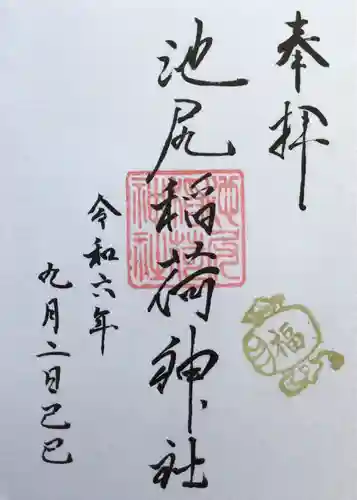 奉拝
池尻稲荷神社
池尻稲荷神社
令和六年
九月二日己巳
福